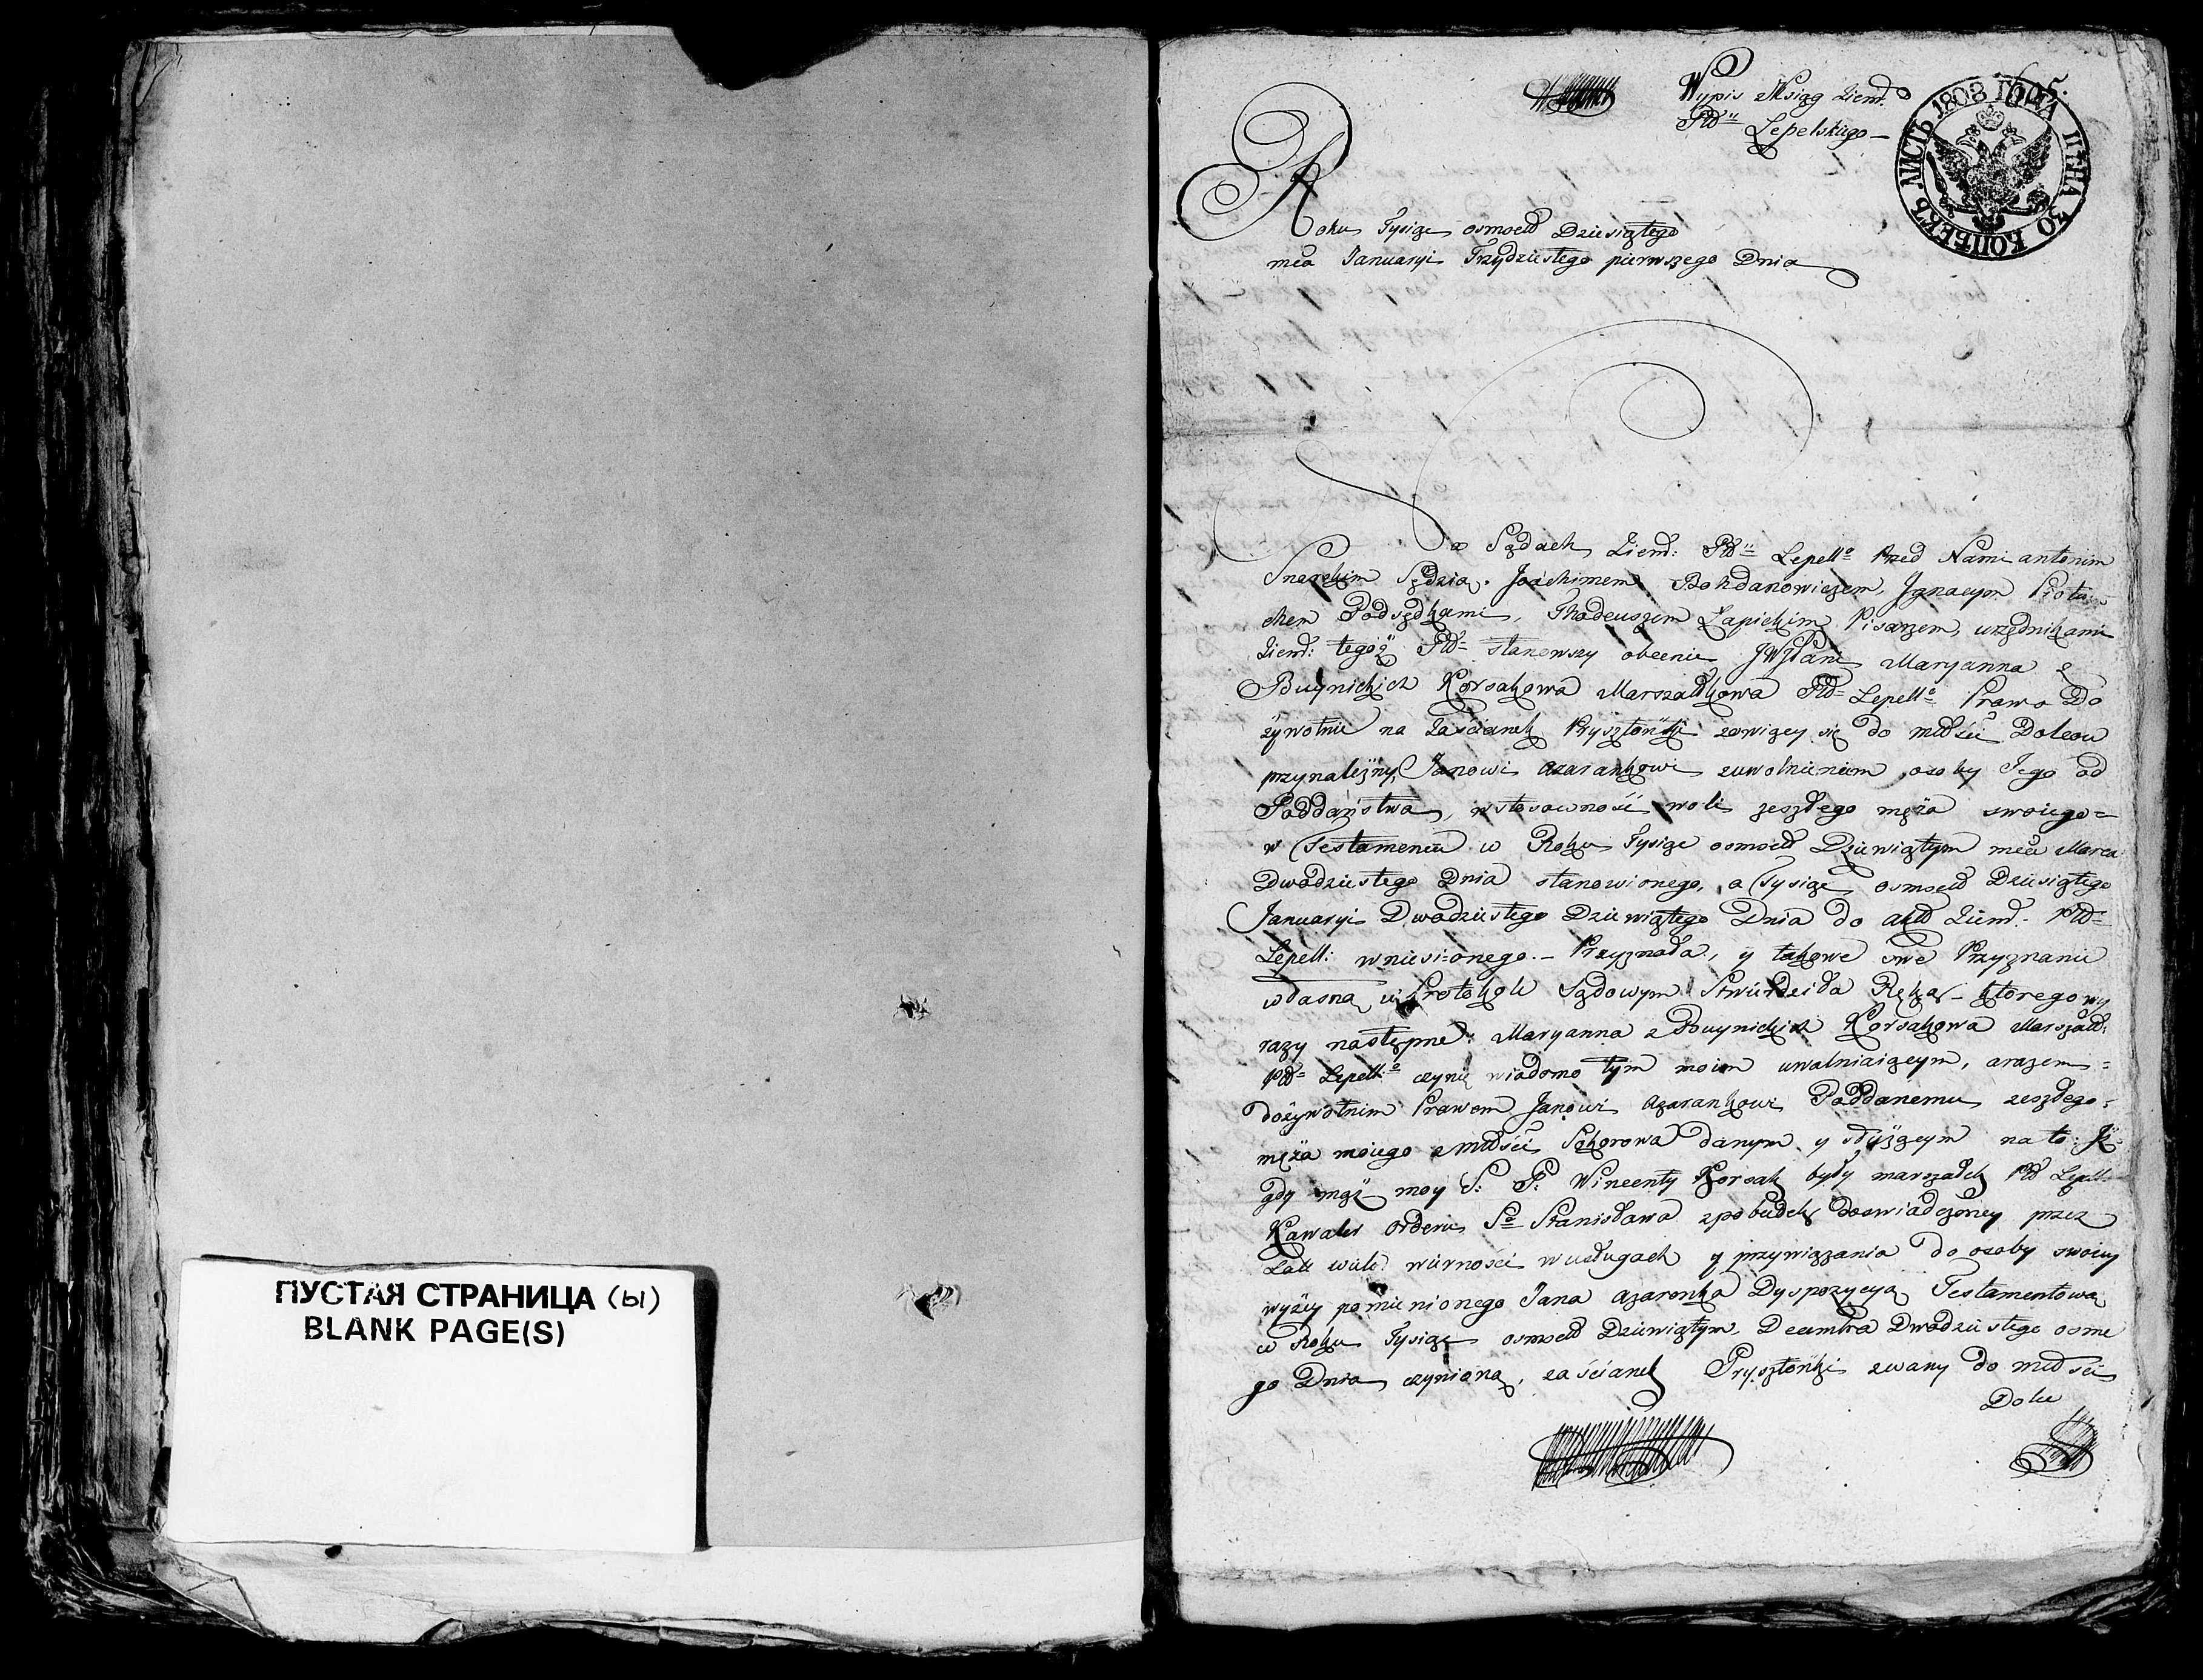 ПУСТАЯ СТРАНИЦА (ы)
BLANK PAGE(S)
Wypis z Ksiąg Ziem:
Ptu Lepelskiego
605.
ЛИСТЪ 1808 ГОДА ЦѢНА 30 КОПѢЕКЪ.
Roku Tysiąc osmset Dziesiątego
mca Januaryi Trzydziestego pierwszego Dnia
w Sądach Ziem: Ptu Lepello Przed Nami antonim
Snarskim Sędzią, Joachimem Bohdanowiczem, Ignacym
Podsędkami, Thadeuszem Łapickim Pisarzem, urzędnikami
Ziem: tegoż Ptu stanowszy obecnie JWJPani Maryanna z
Buynickich Korsakowa Marszałkowa Ptu Lepello Prawo Do
żywotnie na Zaścianek Prysztońki zowiący się do mtości Dolcow
przynależny, Janowi azarankowi zuwolnieniem osoby Jego od
Poddaństwa, wstosowność woli zeszłego męża swoiego=
w Testamencie w Roku Tysiąc osmset Dziewiątym mca Marca
Dwadziestego Dnia stanowionego, a Tysiąc osmset Dziesiątego
Januaryi Dwadziestego Dziewiątego Dnia do akt Ziem: Ptu=
Lepell: wniesionego.- Przyznała, y takowe swe Przyznanie
własną w Protokole Sądowym Stwierdziła Ręką- ktorego wy
razy następne: Maryanna z Buynickich Korsakowa Marszałk:
Ptu= Lepello czynię wiadomo tym moim uwalniaiącym, arazem=
dożywotnim Prawem Janowi azarankowi Poddanemu zeszłego=
męża moiego z mtości Sokorowa danym y służącym na to: Iż=
gdy mąż moy S: P: Wincenty Korsak były marszałek Ptu Lepell:
Kawaler orderu So Stanisława zpobudek doswiadczoney przez
Lat wiele wierności wusługach y przywiązania do osoby swoiey
wyżey pomienionego Jana azaronka Dyspozycyą Testamentową
w Roku Tysiąc osmset Dziewiątym Decembra Dwadziestego osme
go Dnia czynioną, zaścianek Prysztońki zwany do mtości
Dolec